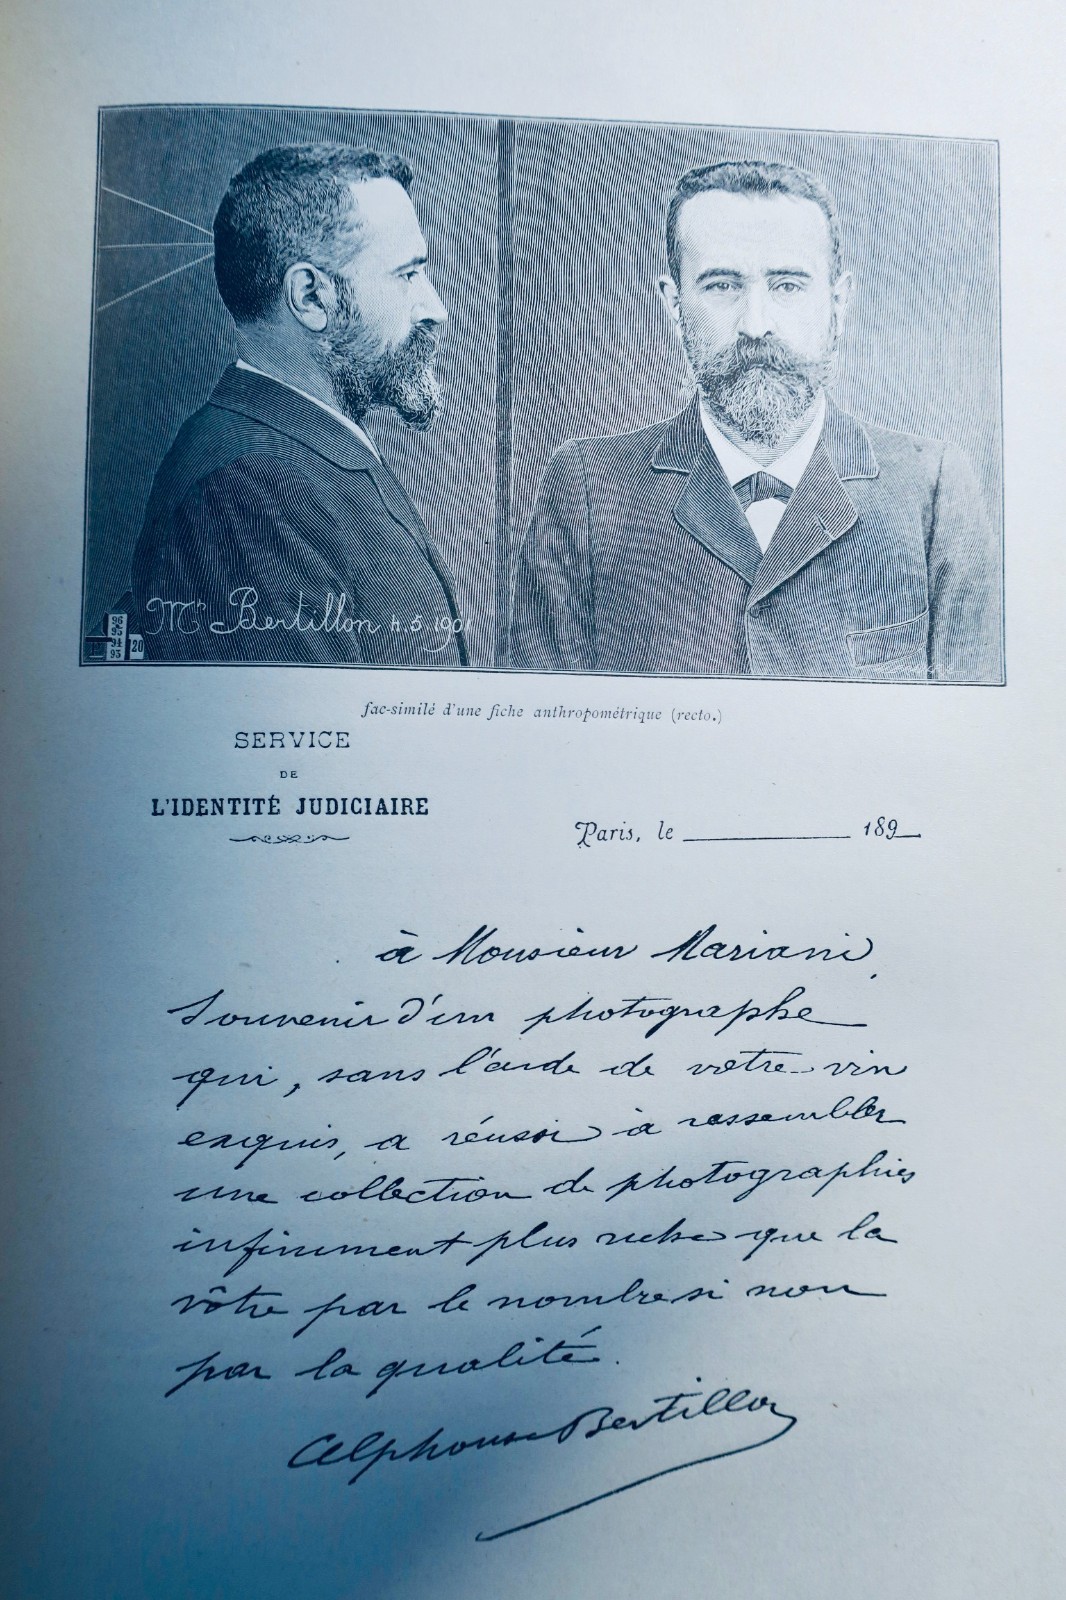 Mr Bertillon 4.5.1901
96
95
94
93
20
fac-similé d'une fiche anthropométrique (recto.)
SERVICE
DE
L'IDENTITÉ JUDICIAIRE
Paris, le 189
à Monsieur Mariani,
Souvenir d'un photographe
qui, sans l'aide de votre vin
exquis, a réussi à rassembler
une collection de photographies
infiniment plus riche que la
vôtre par le nombre si non
par la qualité.
Alphonse Bertillon